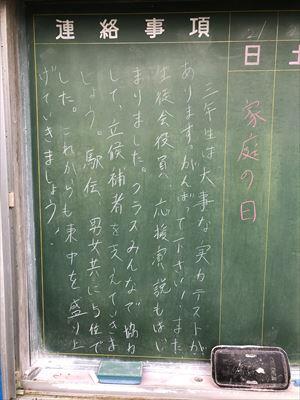 連絡事項
21
日
土
家庭の日
三年生は大事な実力テストが
あります。がんばって下さい！また
生徒会役員、応援演説もはじ
まりました。クラスみんなで協力
して、立候補者を支えていきま
しょう。駅伝、男女共に
した。これからも東中を盛り上
げていきましょう！